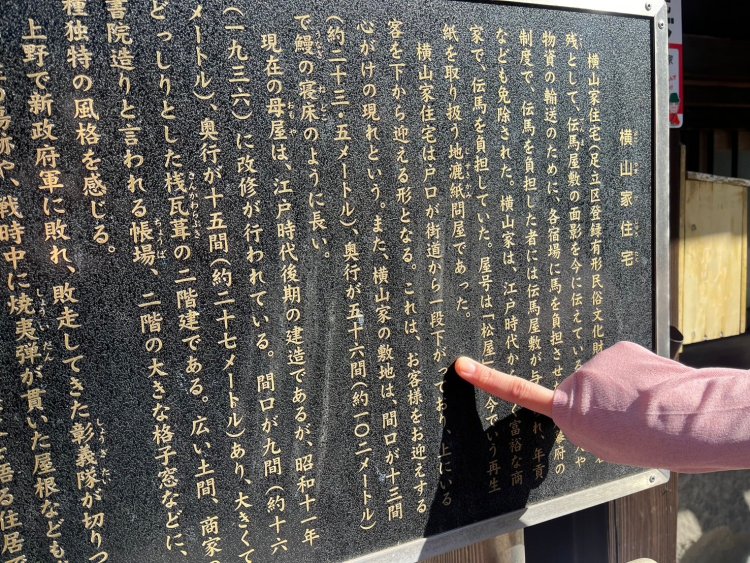 横山家住宅
横山家住宅（足立区登録有形民俗文化財
残として、伝馬屋敷の面影を今に伝えてい
物資の輸送のために、各宿場に馬を負担させ 府の
制度で、伝馬を負担した者には伝馬屋敷が与 れ、年貢
なども免除された。横山家は、江戸時代か 富裕な商
家で、伝馬を負担していた。屋号は「松屋 いう再生
紙を取り扱う地漉紙問屋であった。
横山家住宅は戸口が街道から一段下がっており、上にいる
客を下から迎える形となる。これは、お客様をお迎えする
心がけの現れという。また、横山家の敷地は、間口が十三間
（約二十三・五メートル）、奥行が五十六間（約一〇二メートル）
で鰻の寝床のように長い。
現在の母屋は、江戸時代後期の建造であるが、昭和十一年
（一九三六）に改修が行われている。間口が九間（約十六
メートル）、奥行が十五間（約二十七メートル）あり、大きくて
どっしりとした桟瓦葺の二階建である。広い土間、商家の
書院造りと言われる帳場、二階の大きな格子窓などに、
種独特の風格を感じる。
上野で新政府軍に敗れ、敗走してきた彰義隊が切りつ
や、戦時中に焼夷弾が貫いた屋根なども
語る住居で